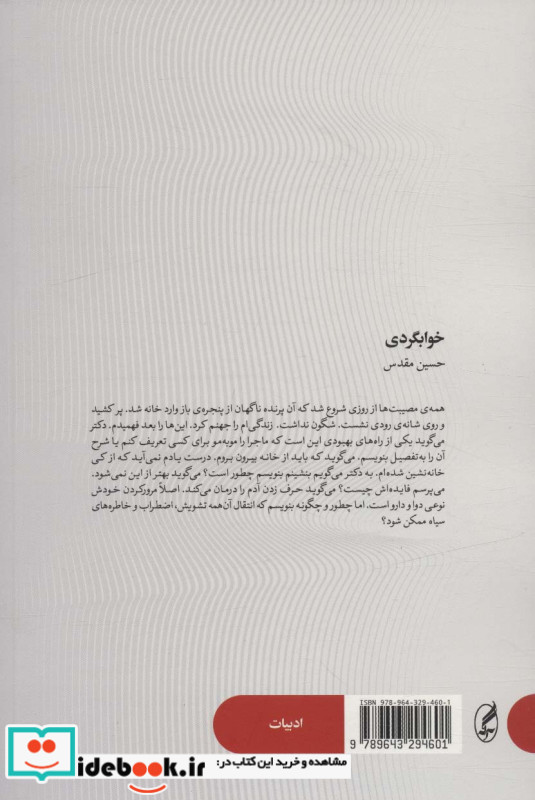 خوابگردی
حسین مقدس
همه‌ی مصیبت‌ها از روزی شروع شد که آن پرنده ناگهان از پنجره‌ی باز وارد خانه شد. پر کشید
و روی شانه‌ی رودی نشست. شگون نداشت. زندگی‌ام را جهنم کرد. این‌ها را بعد فهمیدم. دکتر
می‌گوید یکی از راه‌های بهبودی این است که ماجرا را موبه‌مو برای کسی تعریف کنم یا شرح
آن را به‌تفصیل بنویسم. می‌گوید که باید از خانه بیرون بروم. درست یادم نمی‌آید که از کی
خانه‌نشین شده‌ام. به دکتر می‌گویم بنشینم بنویسم چطور است؟ می‌گوید بهتر از این نمی‌شود.
می‌پرسم فایده‌اش چیست؟ می‌گوید حرف زدن آدم را درمان می‌کند. اصلاً مرورکردن خودش
نوعی دوا و دارو است. اما چطور و چگونه بنویسم که انتقال آن‌همه تشویش، اضطراب و خاطره‌های
سیاه ممکن شود؟
ادبیات
ISBN 978-964-329-460-1
9 789643 294601
idebook.ir
مشاهده و خرید این کتاب در: